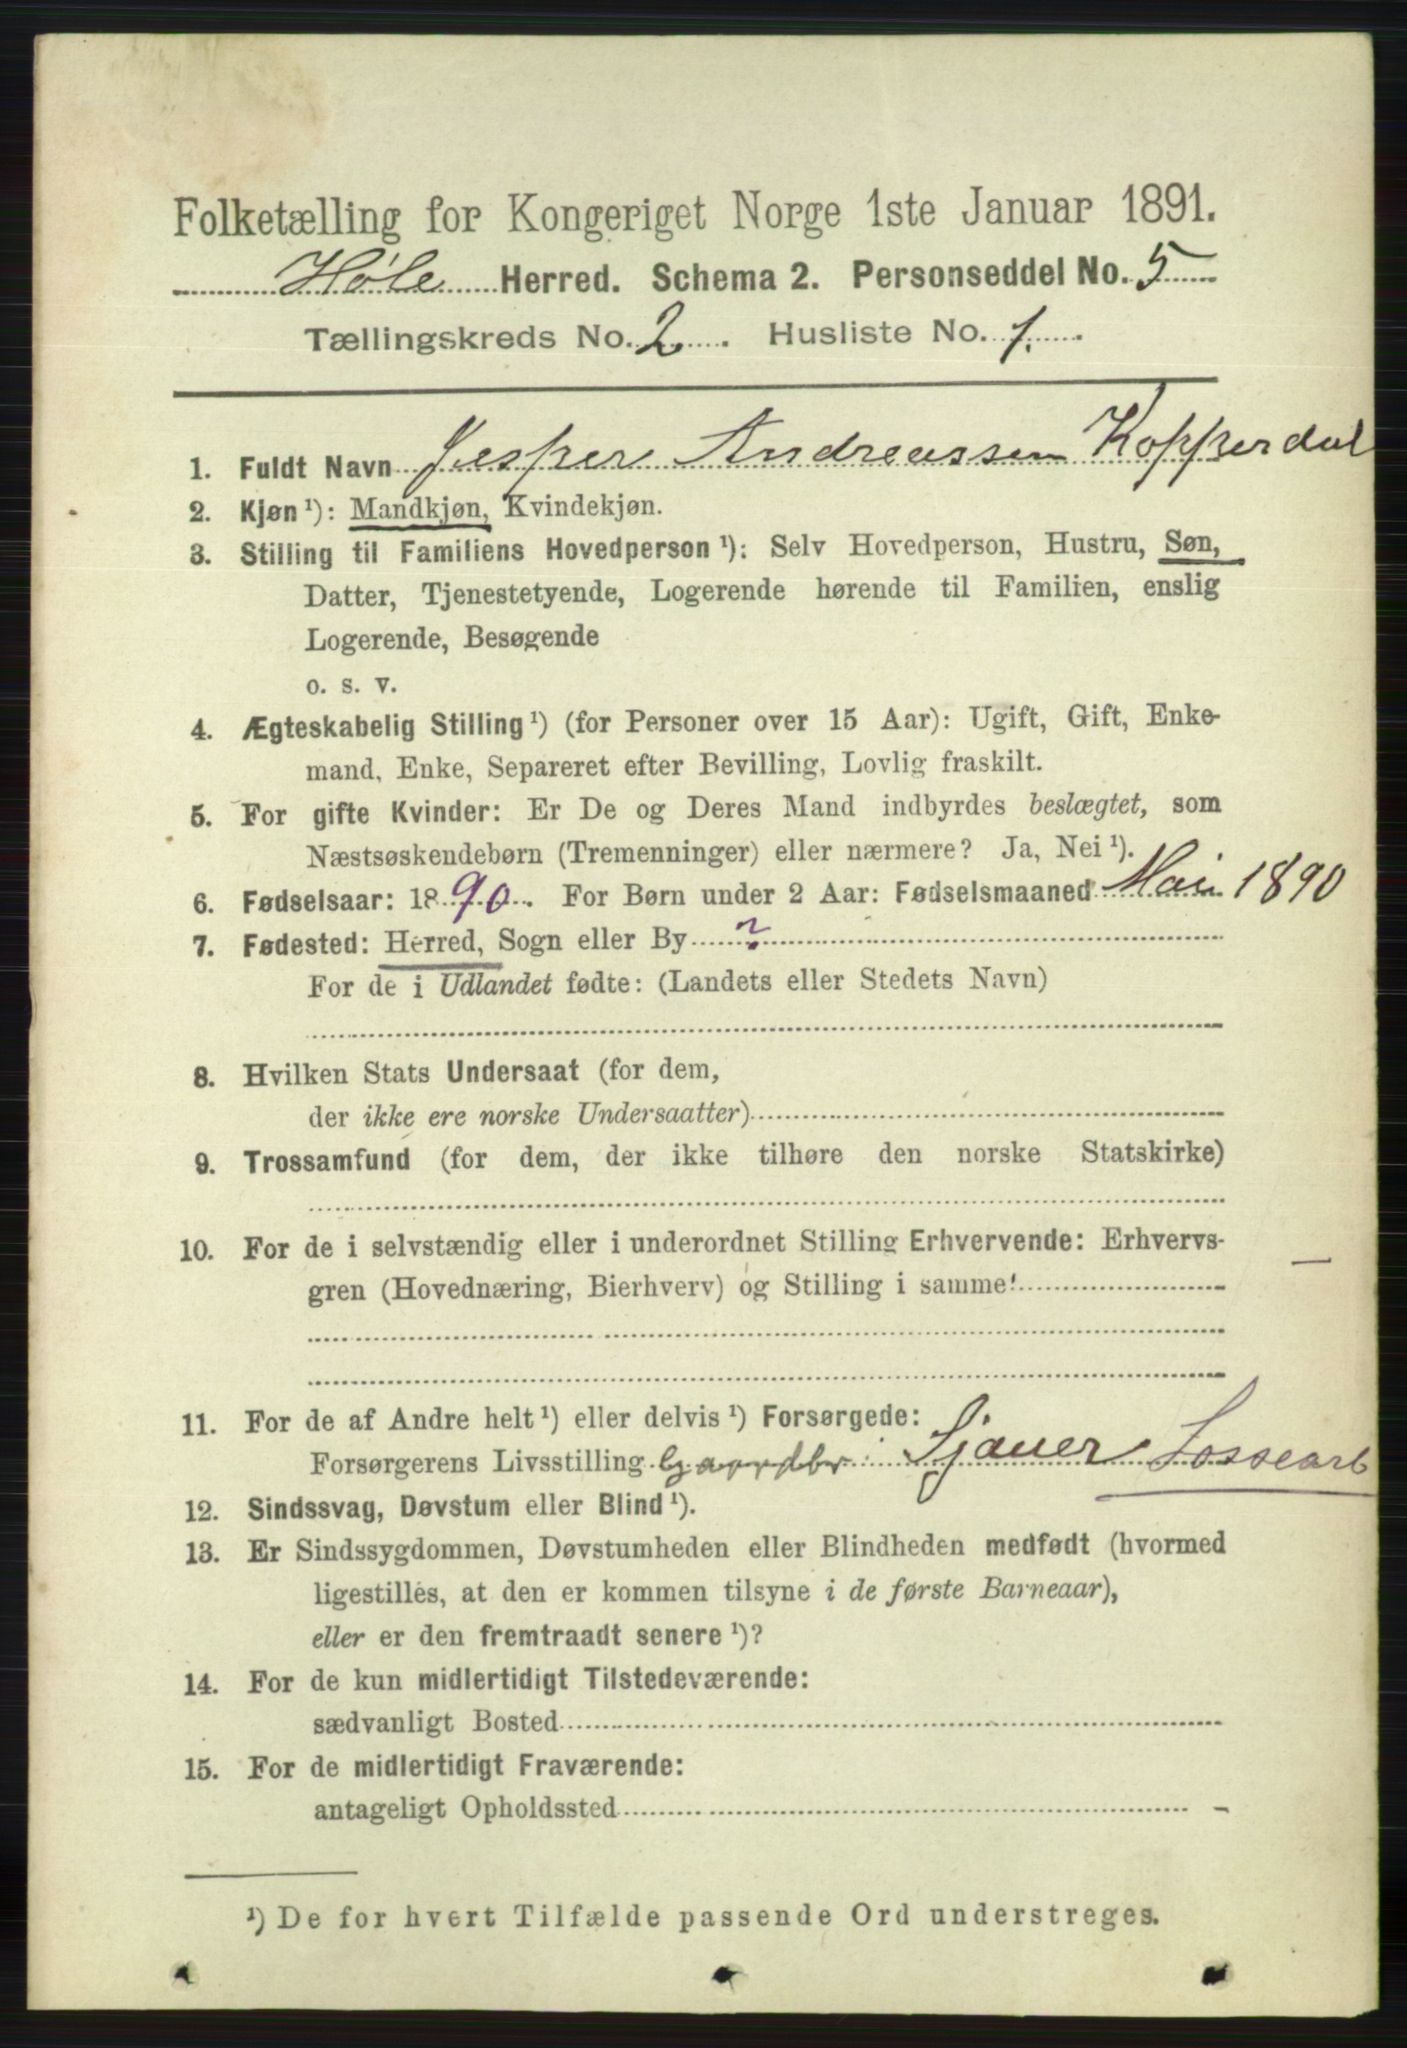 Folketælling for Kongeriget Norge 1ste Januar 1891.
Høle Herred. Schema 2. Personseddel No. 5
Tællingskreds No. 2. Husliste No. 1.
1. Fuldt Navn Jesper Andreassen Kopperdal
2. Kjøn ¹): Mandkjøn, Kvindekjøn.
3. Stilling til Familiens Hovedperson ¹): Selv Hovedperson, Hustru, Søn,
Datter, Tjenestetyende, Logerende hørende til Familien, enslig
Logerende, Besøgende
o. s. v.
4. Ægteskabelig Stilling ¹) (for Personer over 15 Aar): Ugift, Gift, Enke-
mand, Enke, Separeret efter Bevilling, Lovlig fraskilt.
5. For gifte Kvinder: Er De og Deres Mand indbyrdes beslægtet, som
Næstsøskendebørn (Tremenninger) eller nærmere? Ja, Nei ¹).
6. Fødselsaar: 1890. For Børn under 2 Aar: Fødselsmaaned Mai 1890
7. Fødested: Herred, Sogn eller By ?
For de i Udlandet fødte: (Landets eller Stedets Navn)
8. Hvilken Stats Undersaat (for dem,
der ikke ere norske Undersaatter)
9. Trossamfund (for dem, der ikke tilhøre den norske Statskirke)
10. For de i selvstændig eller i underordnet Stilling Erhvervende: Erhvervs-
gren (Hovednæring, Bierhverv) og Stilling i samme!
11. For de af Andre helt ¹) eller delvis ¹) Forsørgede:
Forsørgerens Livsstilling Sjauer Lossearb
12. Sindssvag, Døvstum eller Blind ¹).
13. Er Sindssygdommen, Døvstumheden eller Blindheden medfødt (hvormed
ligestilles, at den er kommen tilsyne i de første Barneaar),
eller er den fremtraadt senere ¹)?
14. For de kun midlertidigt Tilstedeværende:
sædvanligt Bosted
15. For de midlertidigt Fraværende:
antageligt Opholdssted
¹) De for hvert Tilfælde passende Ord understreges.